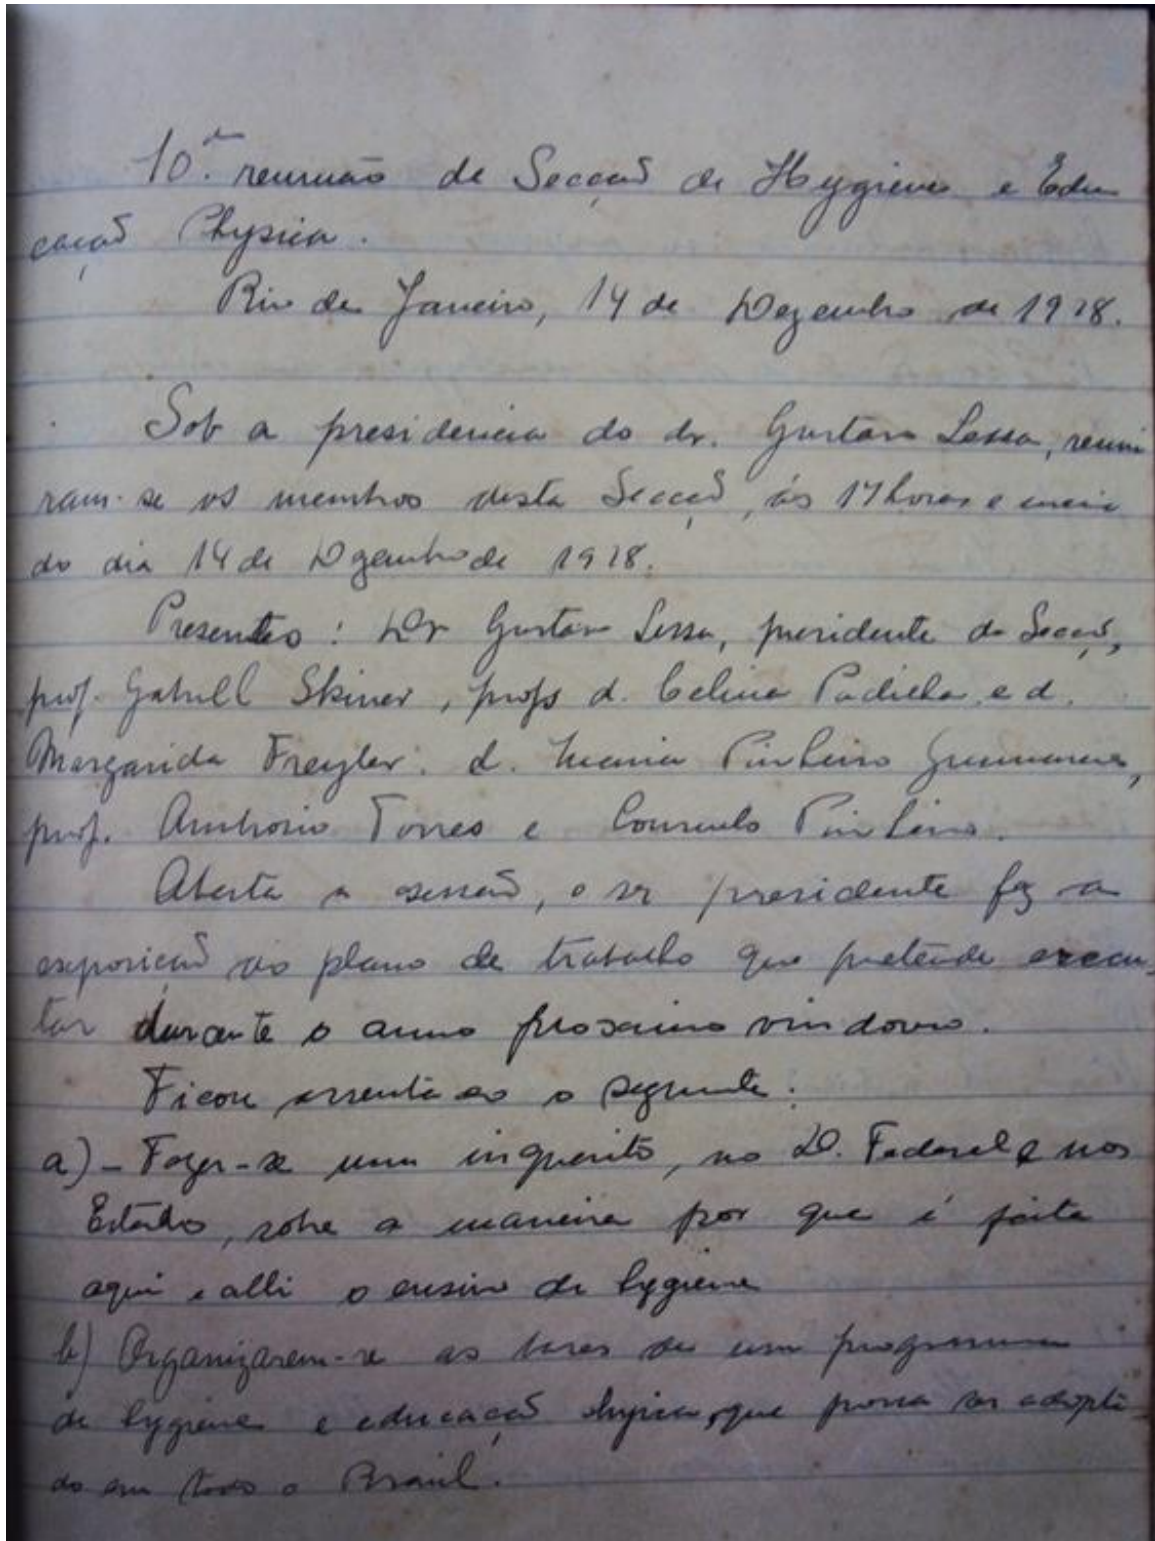 10.ª reunião da Secção de Hygiene e Edu
cação Physica.
Rio de Janeiro, 14 de Dezembro de 1928.
Sob a presidencia do dr. Gustavo Lessa, reuni
ram-se os membros desta Secção, ás 17 horas e meia
do dia 14 de Dezembro de 1928.
Presentes: Dr Gustavo Lessa, presidente da Secção,
prof. Skiner, profs d. Celina Padilha e d.
Margarida Freyler. d. Maria Pinheiro Guimarães,
prof. Ambrosio Torres e Consuelo Pinheiro.
Aberta a sessão, o sr presidente fez a
exposição do plano de trabalho que pretende execu-
tar durante o anno proximo vindouro.
Ficou assentado o seguinte:
a) - Fazer-se um inquerito, no D. Federal e nos
Estados, sobre a maneira por que é feito
aqui e alli o ensino de hygiene
b) Organizarem-se as bases de um programma
de hygiene e educação physica, que possa ser adopta
do em todo o Brasil.